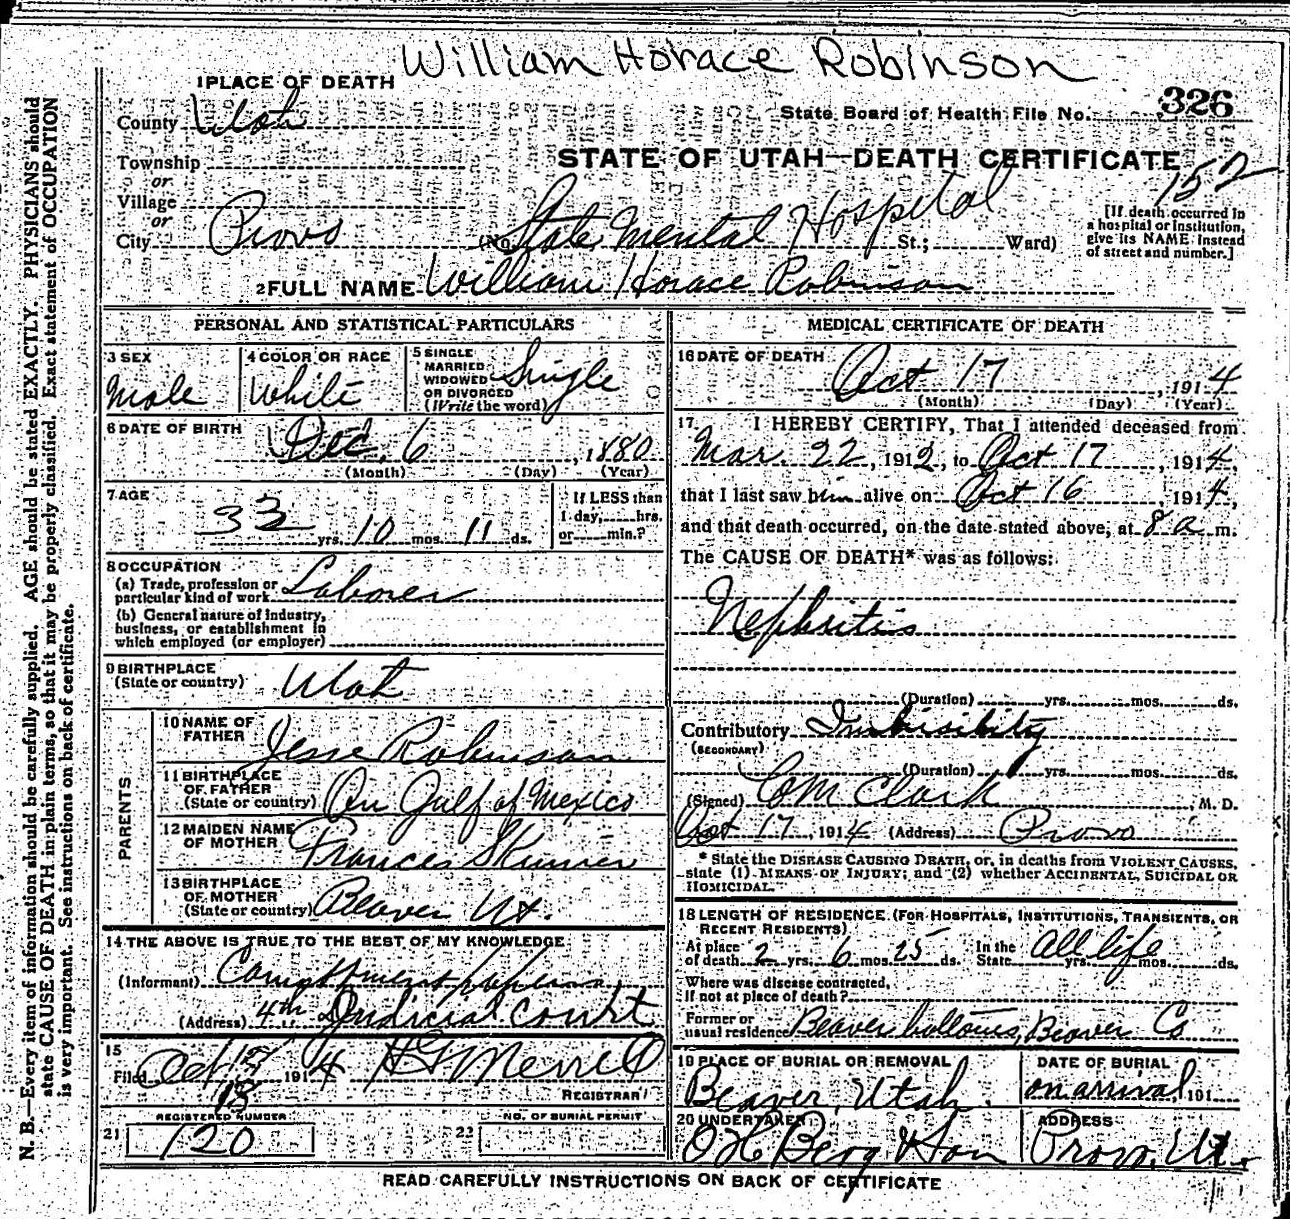 William Horace Robinson
1 PLACE OF DEATH
State Board of Health File No. 326
County Utah
Township
or
Village
or
City Provo
STATE OF UTAH—DEATH CERTIFICATE
152
(No. State Mental Hospital St.; Ward)
[If death occurred in
a hospital or institution,
give its NAME instead
of street and number.]
2 FULL NAME William Horace Robinson
PERSONAL AND STATISTICAL PARTICULARS
3 SEX
Male
4 COLOR OR RACE
White
5 SINGLE
MARRIED
WIDOWED
OR DIVORCED
(Write the word)
Single
6 DATE OF BIRTH
Dec. 6, 1880
(Month) (Day) (Year)
7 AGE
33 yrs. 10 mos. 11 ds.
If LESS than
1 day, hrs.
or min.?
8 OCCUPATION
(a) Trade, profession or
particular kind of work Laborer
(b) General nature of industry,
business, or establishment in
which employed (or employer)
9 BIRTHPLACE
(State or country) Utah
PARENTS
10 NAME OF
FATHER Jesse Robinson
11 BIRTHPLACE
OF FATHER
(State or country) On Gulf of Mexico
12 MAIDEN NAME
OF MOTHER Frances Skinner
13 BIRTHPLACE
OF MOTHER
(State or country) Beaver Ut.
14 THE ABOVE IS TRUE TO THE BEST OF MY KNOWLEDGE
(Informant) Commitment papers,
(Address) 4th Judicial Court
15
Filed Oct 18 1914 H G Merrill
REGISTRAR
REGISTERED NUMBER
21 120
NO. OF BURIAL PERMIT
22
MEDICAL CERTIFICATE OF DEATH
16 DATE OF DEATH
Oct 17, 1914
(Month) (Day) (Year)
17 I HEREBY CERTIFY, That I attended deceased from
Mar. 22, 1912, to Oct 17, 1914,
that I last saw him alive on Oct 16, 1914,
and that death occurred, on the date stated above, at 8 a m.
The CAUSE OF DEATH* was as follows:
Nephritis
(Duration) yrs. mos. ds.
Contributory
(SECONDARY)
(Duration) yrs. mos. ds.
(Signed) Clark, M. D.
Oct 17, 1914 (Address) Provo
* State the DISEASE CAUSING DEATH, or, in deaths from VIOLENT CAUSES,
state (1) MEANS OF INJURY; and (2) whether ACCIDENTAL, SUICIDAL OR
HOMICIDAL.
18 LENGTH OF RESIDENCE (FOR HOSPITALS, INSTITUTIONS, TRANSIENTS, OR
RECENT RESIDENTS)
At place
of death 2 yrs. 6 mos. 25 ds.
In the
State All life yrs. mos. ds.
Where was disease contracted,
if not at place of death?
Former or
usual residence Beaver bottoms, Beaver Co
19 PLACE OF BURIAL OR REMOVAL
Beaver, Utah.
DATE OF BURIAL
on arrival 191
20 UNDERTAKER
O H Berg & Son
ADDRESS
Provo, Ut.
READ CAREFULLY INSTRUCTIONS ON BACK OF CERTIFICATE
N. B.—Every item of information should be carefully supplied. AGE should be stated EXACTLY. PHYSICIANS should
state CAUSE OF DEATH in plain terms, so that it may be properly classified. Exact statement of OCCUPATION
is very important. See instructions on back of certificate.